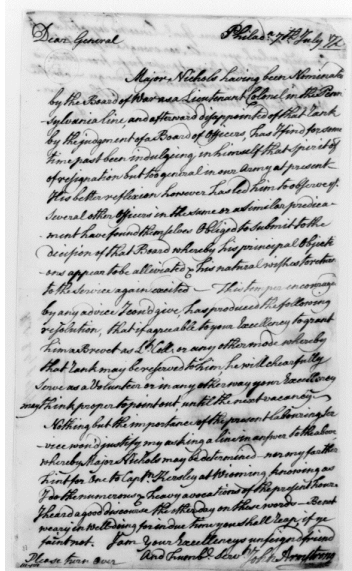 Dear General Philada. 7th. July 79
Major Nichols having been Nominated
by the Board of War as a Lieutenant Colonel in the Penn
sylvania line and afterward disappointed of that Rank
by the judgment of a Board of Officers, has I find for some
time past been indulging in himself that Spirit
of resignation but too general in our Army at present
His better reflexion however has led him to observe yt.
Several other Officers in the same or a similar predica-
ment have found themselves Obliged to Submit to the
decision of that Board whereby his principal Objecti
ons appear to be alleviated & his natural wishes to return
to the Service again excited — This temper encouraged
by any advice I cou'd give, has produced the following
resolution, that if agreable to your Excellency to grant
him a Brevet as Lt. Coll. or any other mode whereby
that Rank may be reserved to him, he will chearfully
Serve as a Volunteer or in any other way your Excellency
may think proper to point out until the next vacancy —
Nothing but the importance of the present labouring Ser
vice wou'd justify my asking a line in answer to the above
whereby Major Nichols may be determined — nor any further
hint for One to Capt. at Wioming knowing as
I do the numerous & heavy avocations of the present hour
I heard a good discourse the other day on these words — Be not
weary in well doing for in due time you shall reap, if ye
faint not. I am your Excellencys unfeigned friend
Please turn Over And humbl. Servt. John Armstrong